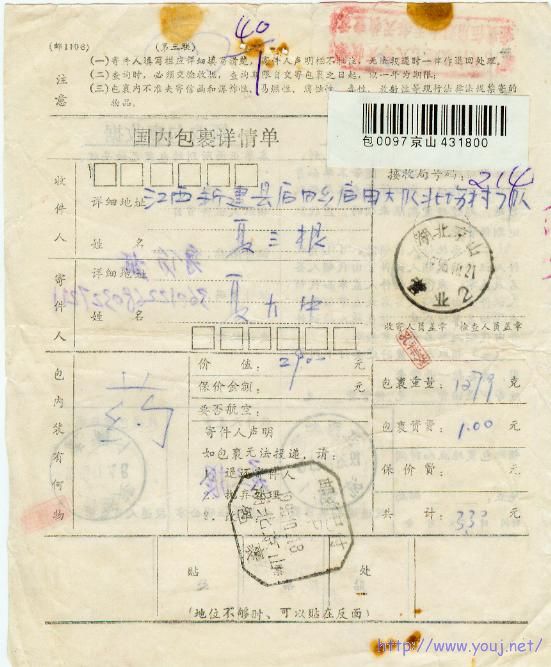 40
(邮1106) (第三联)
注意
(一)寄件人填写栏应详细填写清楚,寄件人声明栏不批注,无法投递时一律作退回处理。
(二)查询时,必须交验收据,查询期限自交寄包裹之日起,以一年为期限;
(三)包裹内不准夹寄信函和爆炸性、易燃性、腐蚀性、毒性、放射性等现行法律法规禁寄的
物品。
国内包裹详情单
包 0097 京山 431800
接收局号码: 214
收件人
详细地址 江西新建县后田乡后田大队北坊村7队
姓 名 夏三根
寄件人
详细地址
姓 名 夏大牛
湖北京山
收寄人员盖章 检查人员盖章
包内装有何物 药
价 值: 2900 元
保价金额: 元
要否航空:
寄件人声明
如包裹无法投递,请:
1、退还寄件人
2、抛弃处理
包裹重量: 1279 克
包裹资费: 1.00 元
保 价 费: 元
共 计: 330 元
贴 处
(地位不够时、可以贴在反面)
http://www.youj.net/